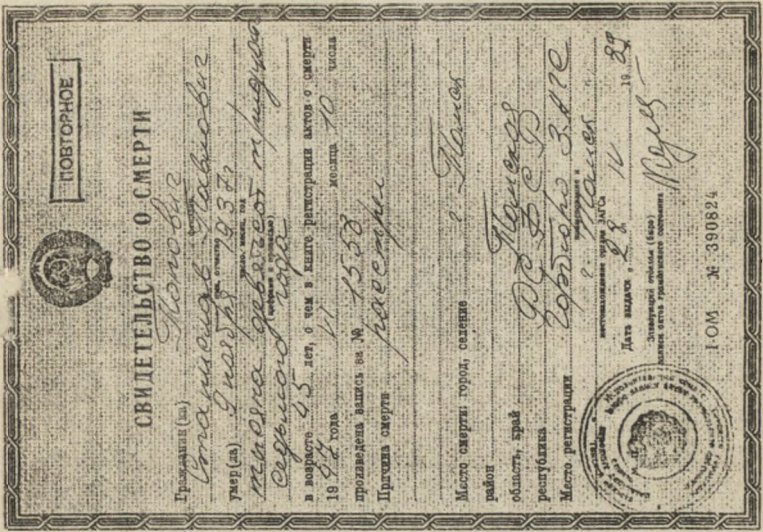 ПОВТОРНОЕ
СВИДЕТЕЛЬСТВО О СМЕРТИ
Гражданин(ка)
Станислав Павлович
умер(ла) 9 ноября 1937г.
тысяча девятьсот тридцать
седьмого года
в возрасте 45 лет, о чем в книге регистрации актов о смерти
19 года VI месяца 10 числа
произведена запись за № 1558
Причина смерти расстрел
Место смерти: город, селение г. Томск
район
область, край Томская
республика РСФСР
Место регистрации Горбюро ЗАГС
г. Томск
местонахождение органа ЗАГСа
Дата выдачи „28 IV 1989
Заведующий отделом (бюро)
записи актов гражданского состояния
I-ОМ № 390824